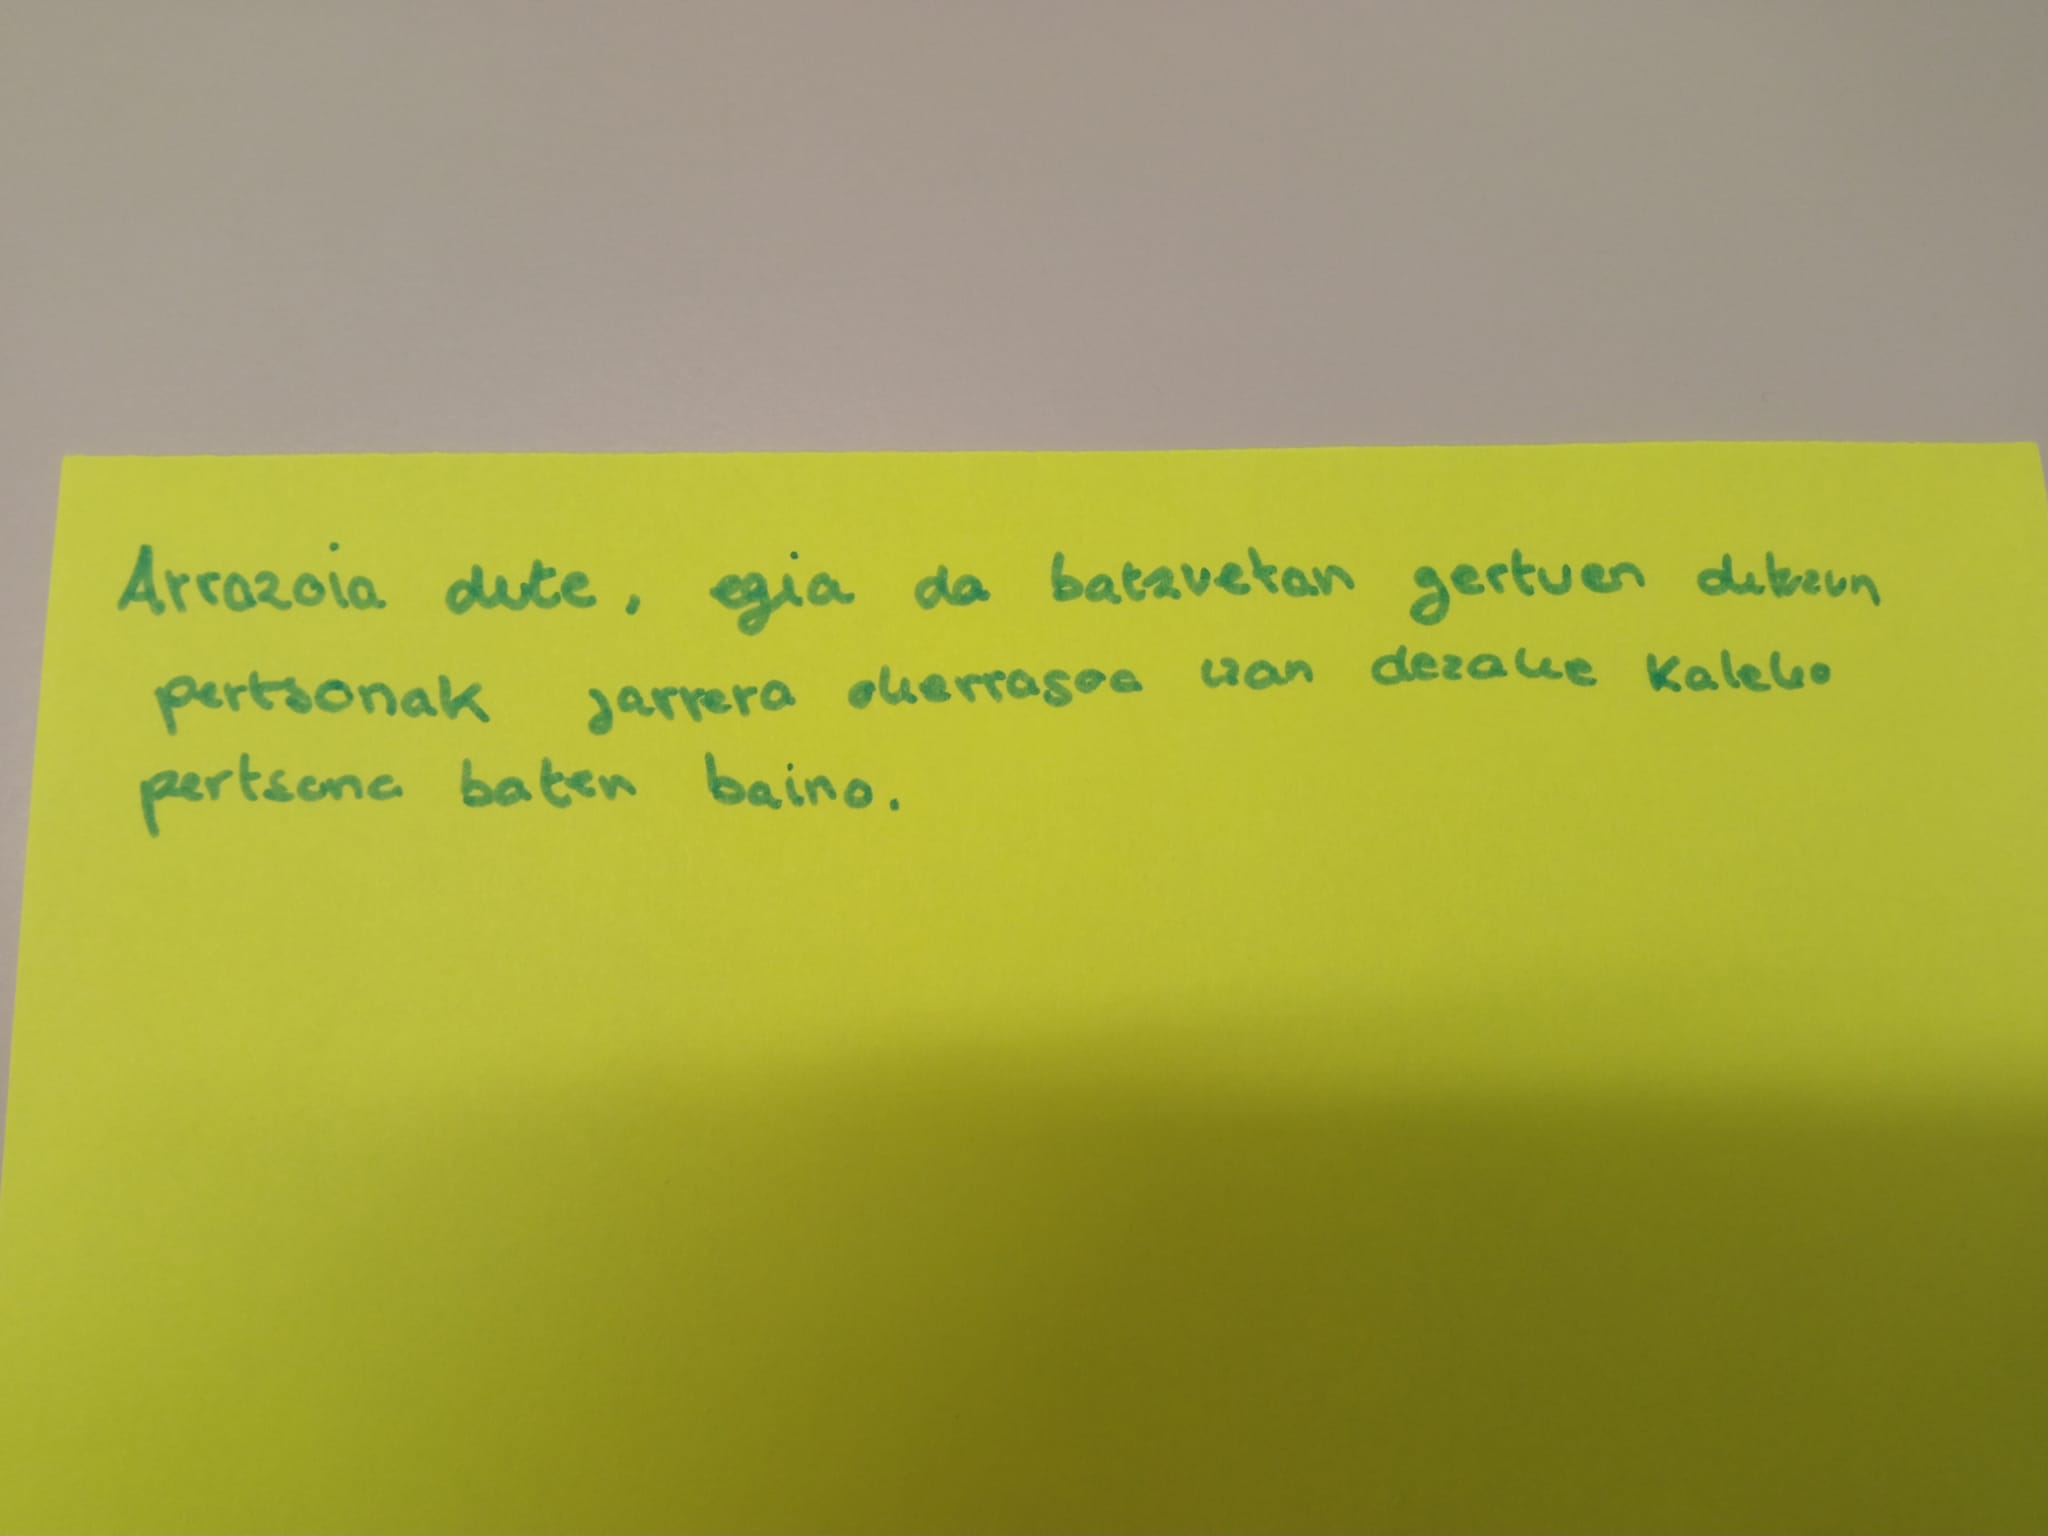 Arrazoia dute, egia da batzuetan gertuen dituzun
pertsonak jarrera okerragoa izan dezake kaleko
pertsona baten baino.